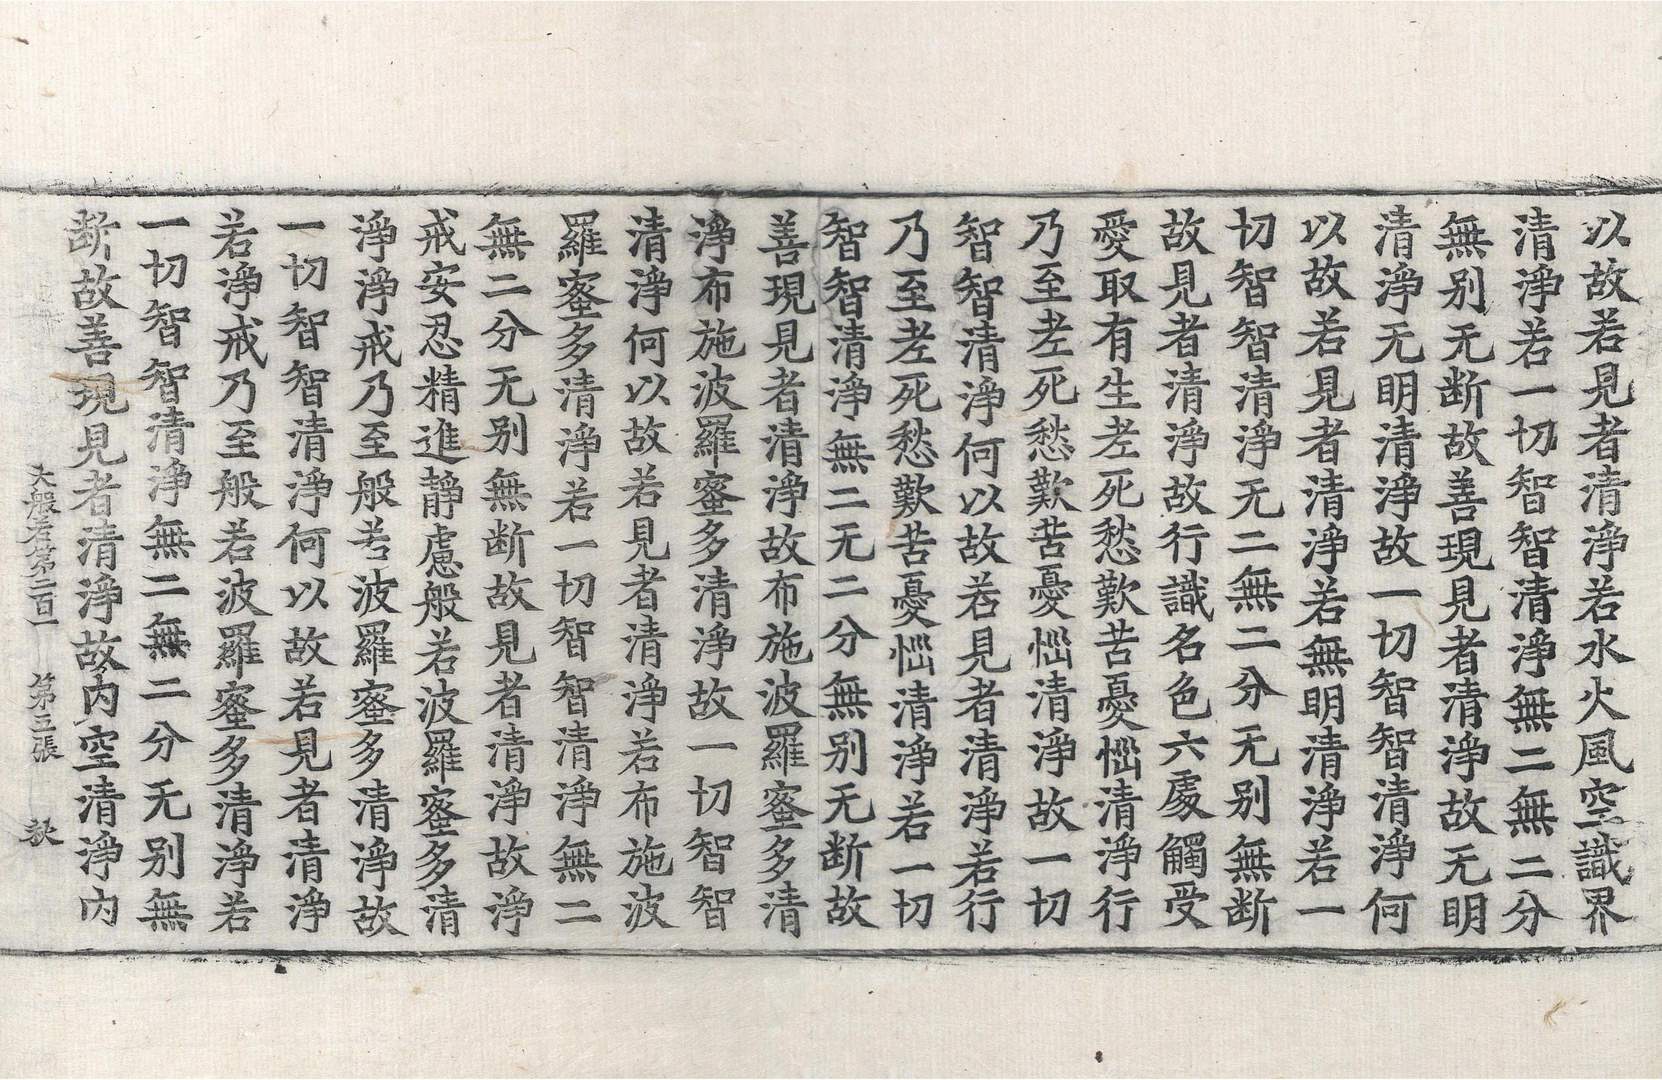 以故若見者清淨若水火風空識界
清淨若一切智智清淨無二無二分
無別无断故善現見者清淨故无明
清淨无明清淨故一切智智清淨何
以故若見者清淨若無明清淨若一
切智智清淨无二無二分无别無断
故見者清淨故行識名色六處觸受
愛取有生老死愁歎苦憂惱清淨行
乃至老死愁歎苦憂惱清淨故一切
智智清淨何以故若見者清淨若行
乃至老死愁歎苦憂惱清淨若一切
智智清淨無二无二分無别无断故
善現見者清淨故布施波羅蜜多清
淨布施波羅蜜多清淨故一切智智
清淨何以故若見者清淨若布施波
羅蜜多清淨若一切智智清淨無二
無二分无别無断故見者清淨故淨
戒安忍精進靜慮般若波羅蜜多清
淨淨戒乃至般若波羅蜜多清淨故
一切智智清淨何以故若見者清淨
若淨戒乃至般若波羅蜜多清淨若
一切智智清淨無二無二分无别無
断故善現見者清淨故内空清淨内
大般若第二百一 第五張